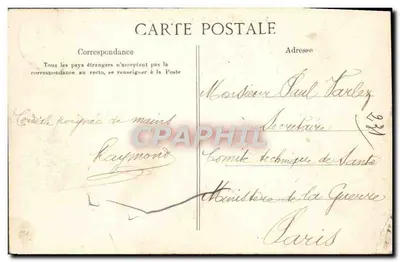 CARTE POSTALE
Correspondance
Tous les pays étrangers n'acceptent pas la
correspondance au recto, se renseigner à la Poste
Adresse
Cordiale poignée de mains
Raymond
Monsieur Paul Varlez
Secrétaire
Comité technique de Santé
Ministère de la Guerre
Paris
CPAPHIL.COM